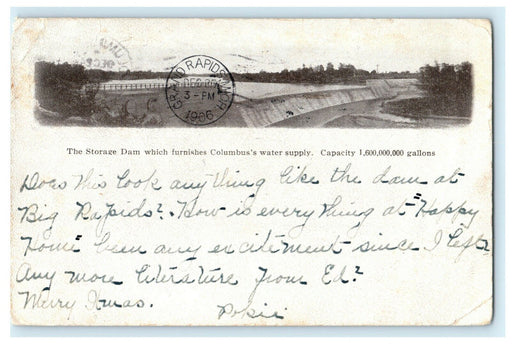 GRAND RAPIDS, MICH.
DEC 25
3-PM
1906
The Storage Dam which furnishes Columbus's water supply. Capacity 1,600,000,000 gallons
Does this look anything like the dam at
Big Rapids? How is everything at "Happy
Home" been any excitement since I left?
Any more literature from Ed?
Merry Xmas.